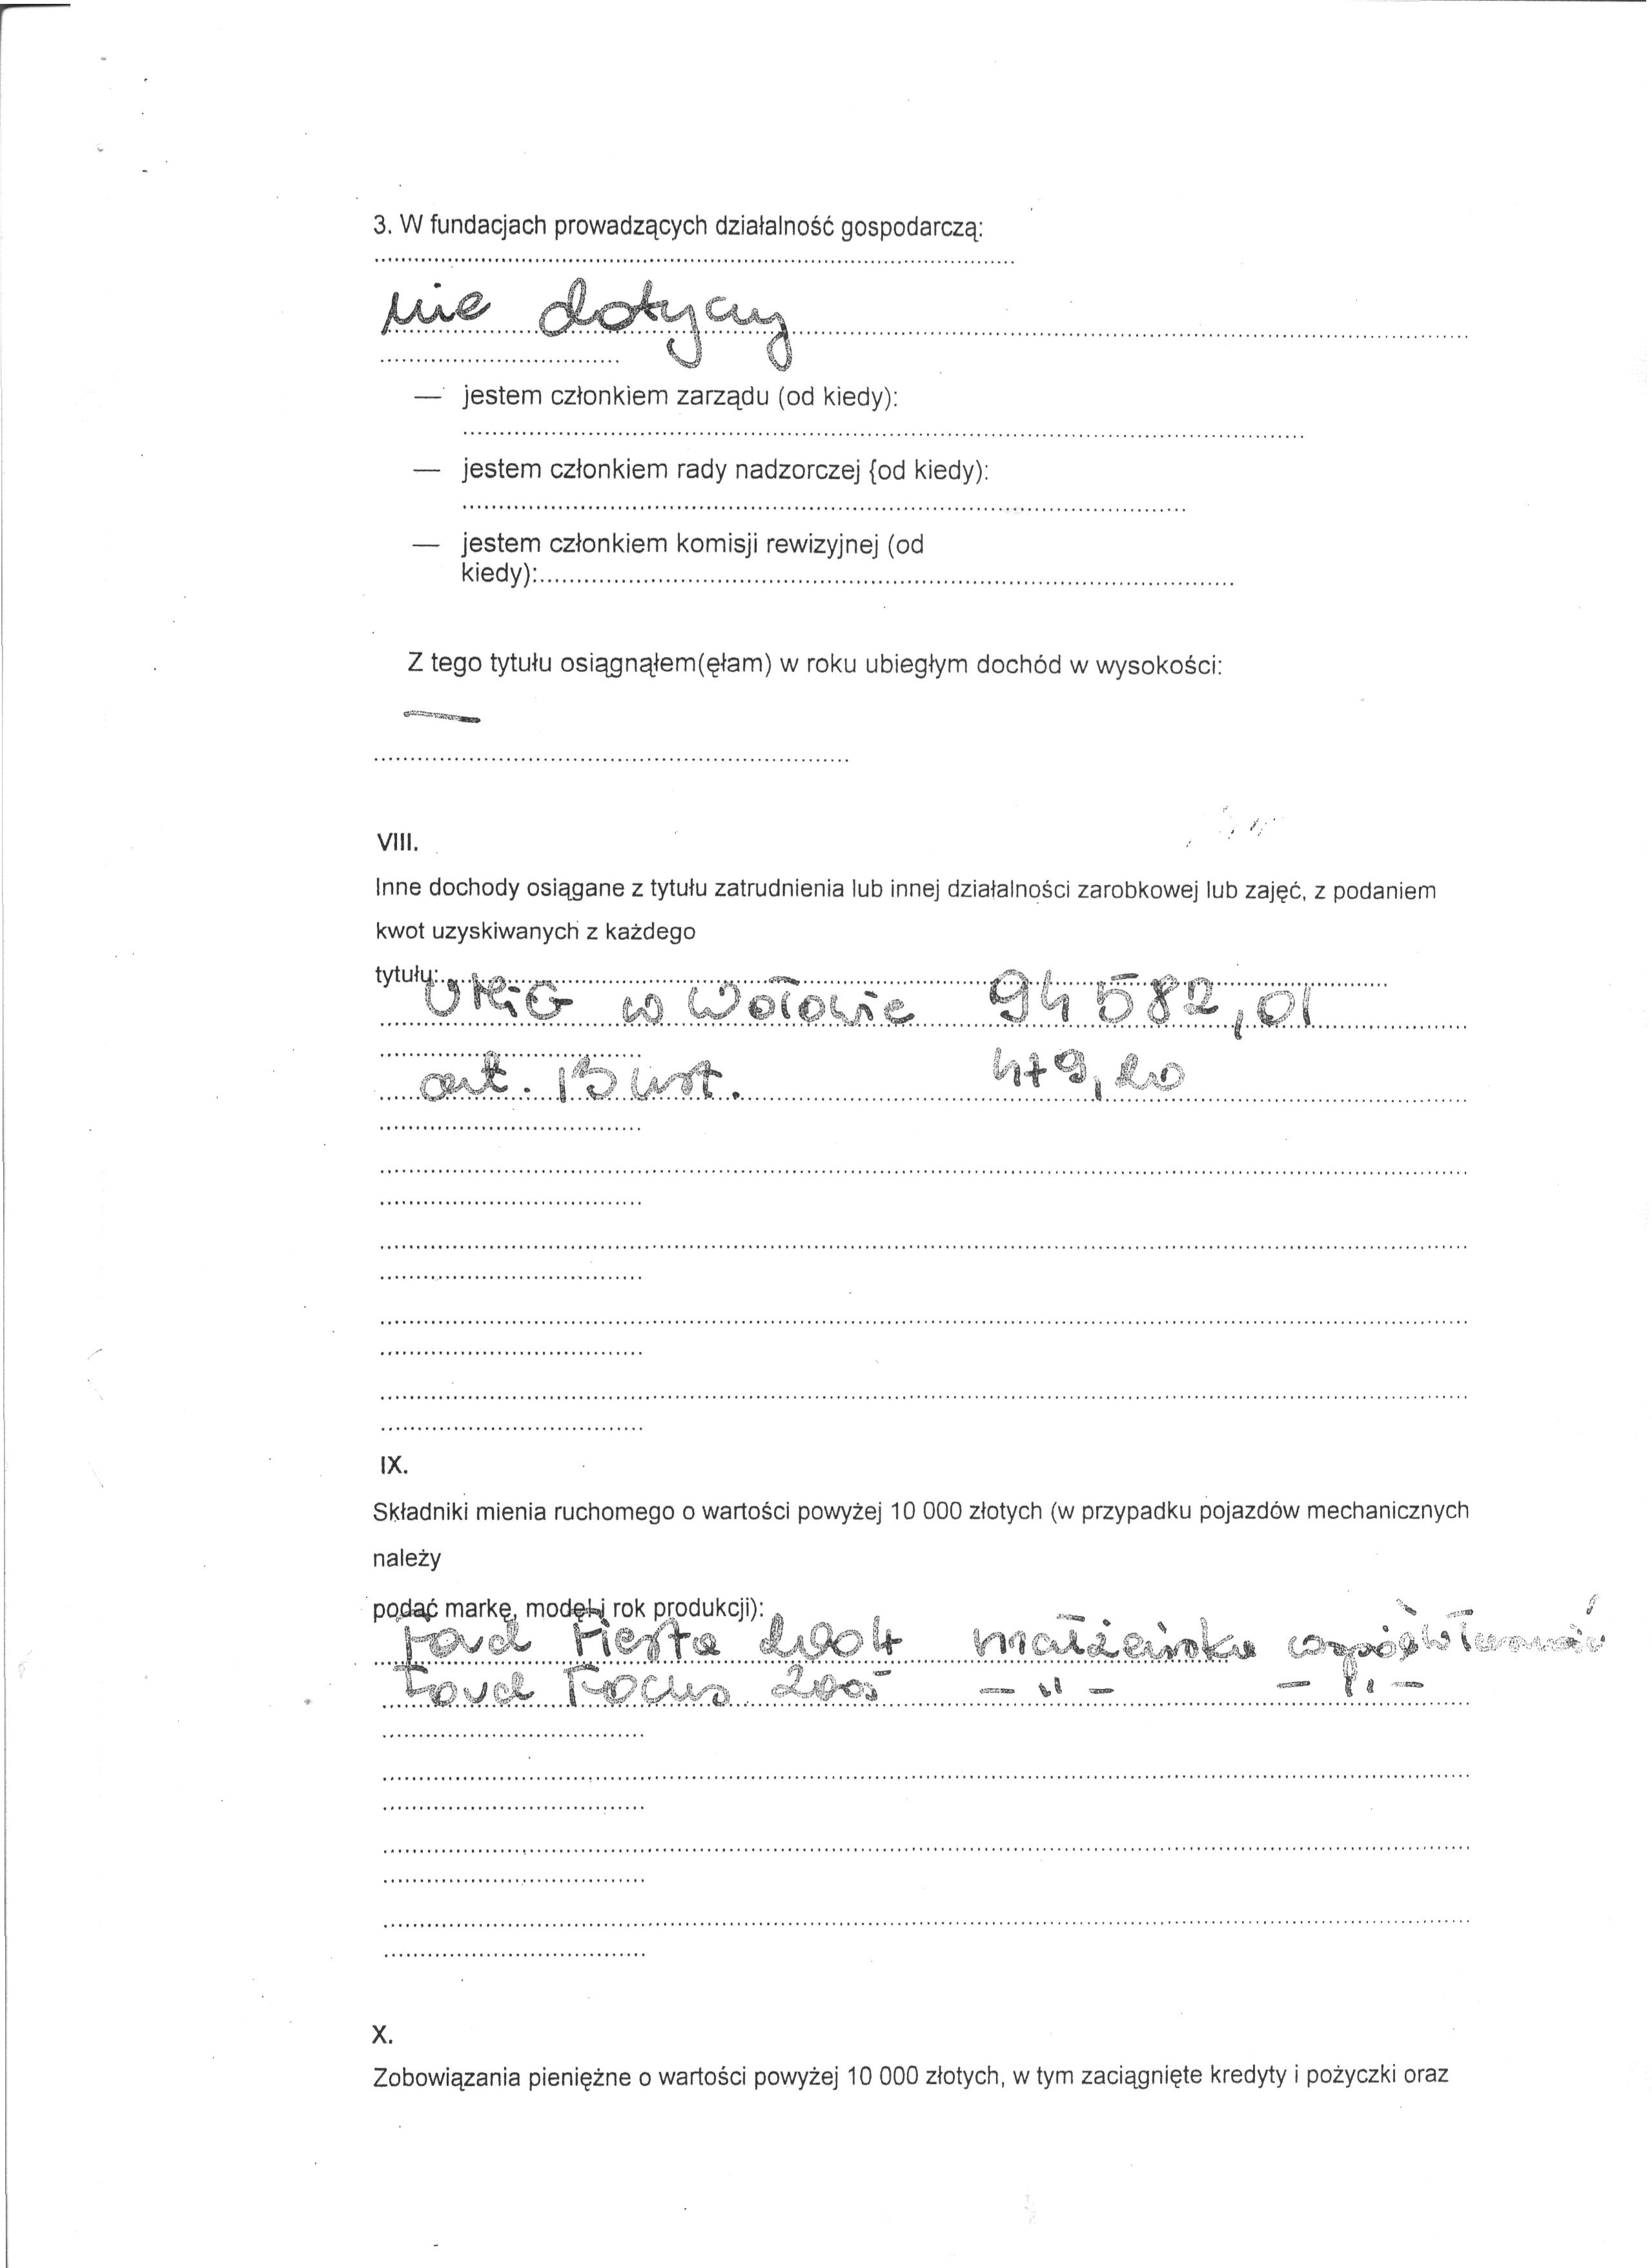 3. W fundacjach prowadzących działalność gospodarczą:
nie dotyczy
— jestem członkiem zarządu (od kiedy):
— jestem członkiem rady nadzorczej {od kiedy):
— jestem członkiem komisji rewizyjnej (od
kiedy):
Z tego tytułu osiągnąłem(ęłam) w roku ubiegłym dochód w wysokości:
—
VIII.
Inne dochody osiągane z tytułu zatrudnienia lub innej działalności zarobkowej lub zajęć, z podaniem
kwot uzyskiwanych z każdego
tytułu:
UMiG w Wołowie 94 582,01
art. 13 ust. 479,20
IX.
Składniki mienia ruchomego o wartości powyżej 10 000 złotych (w przypadku pojazdów mechanicznych
należy
podać markę, model i rok produkcji):
Ford Fiesta 2004 małżeńska współwłasność
Ford Focus 2005 — " — — " —
X.
Zobowiązania pieniężne o wartości powyżej 10 000 złotych, w tym zaciągnięte kredyty i pożyczki oraz